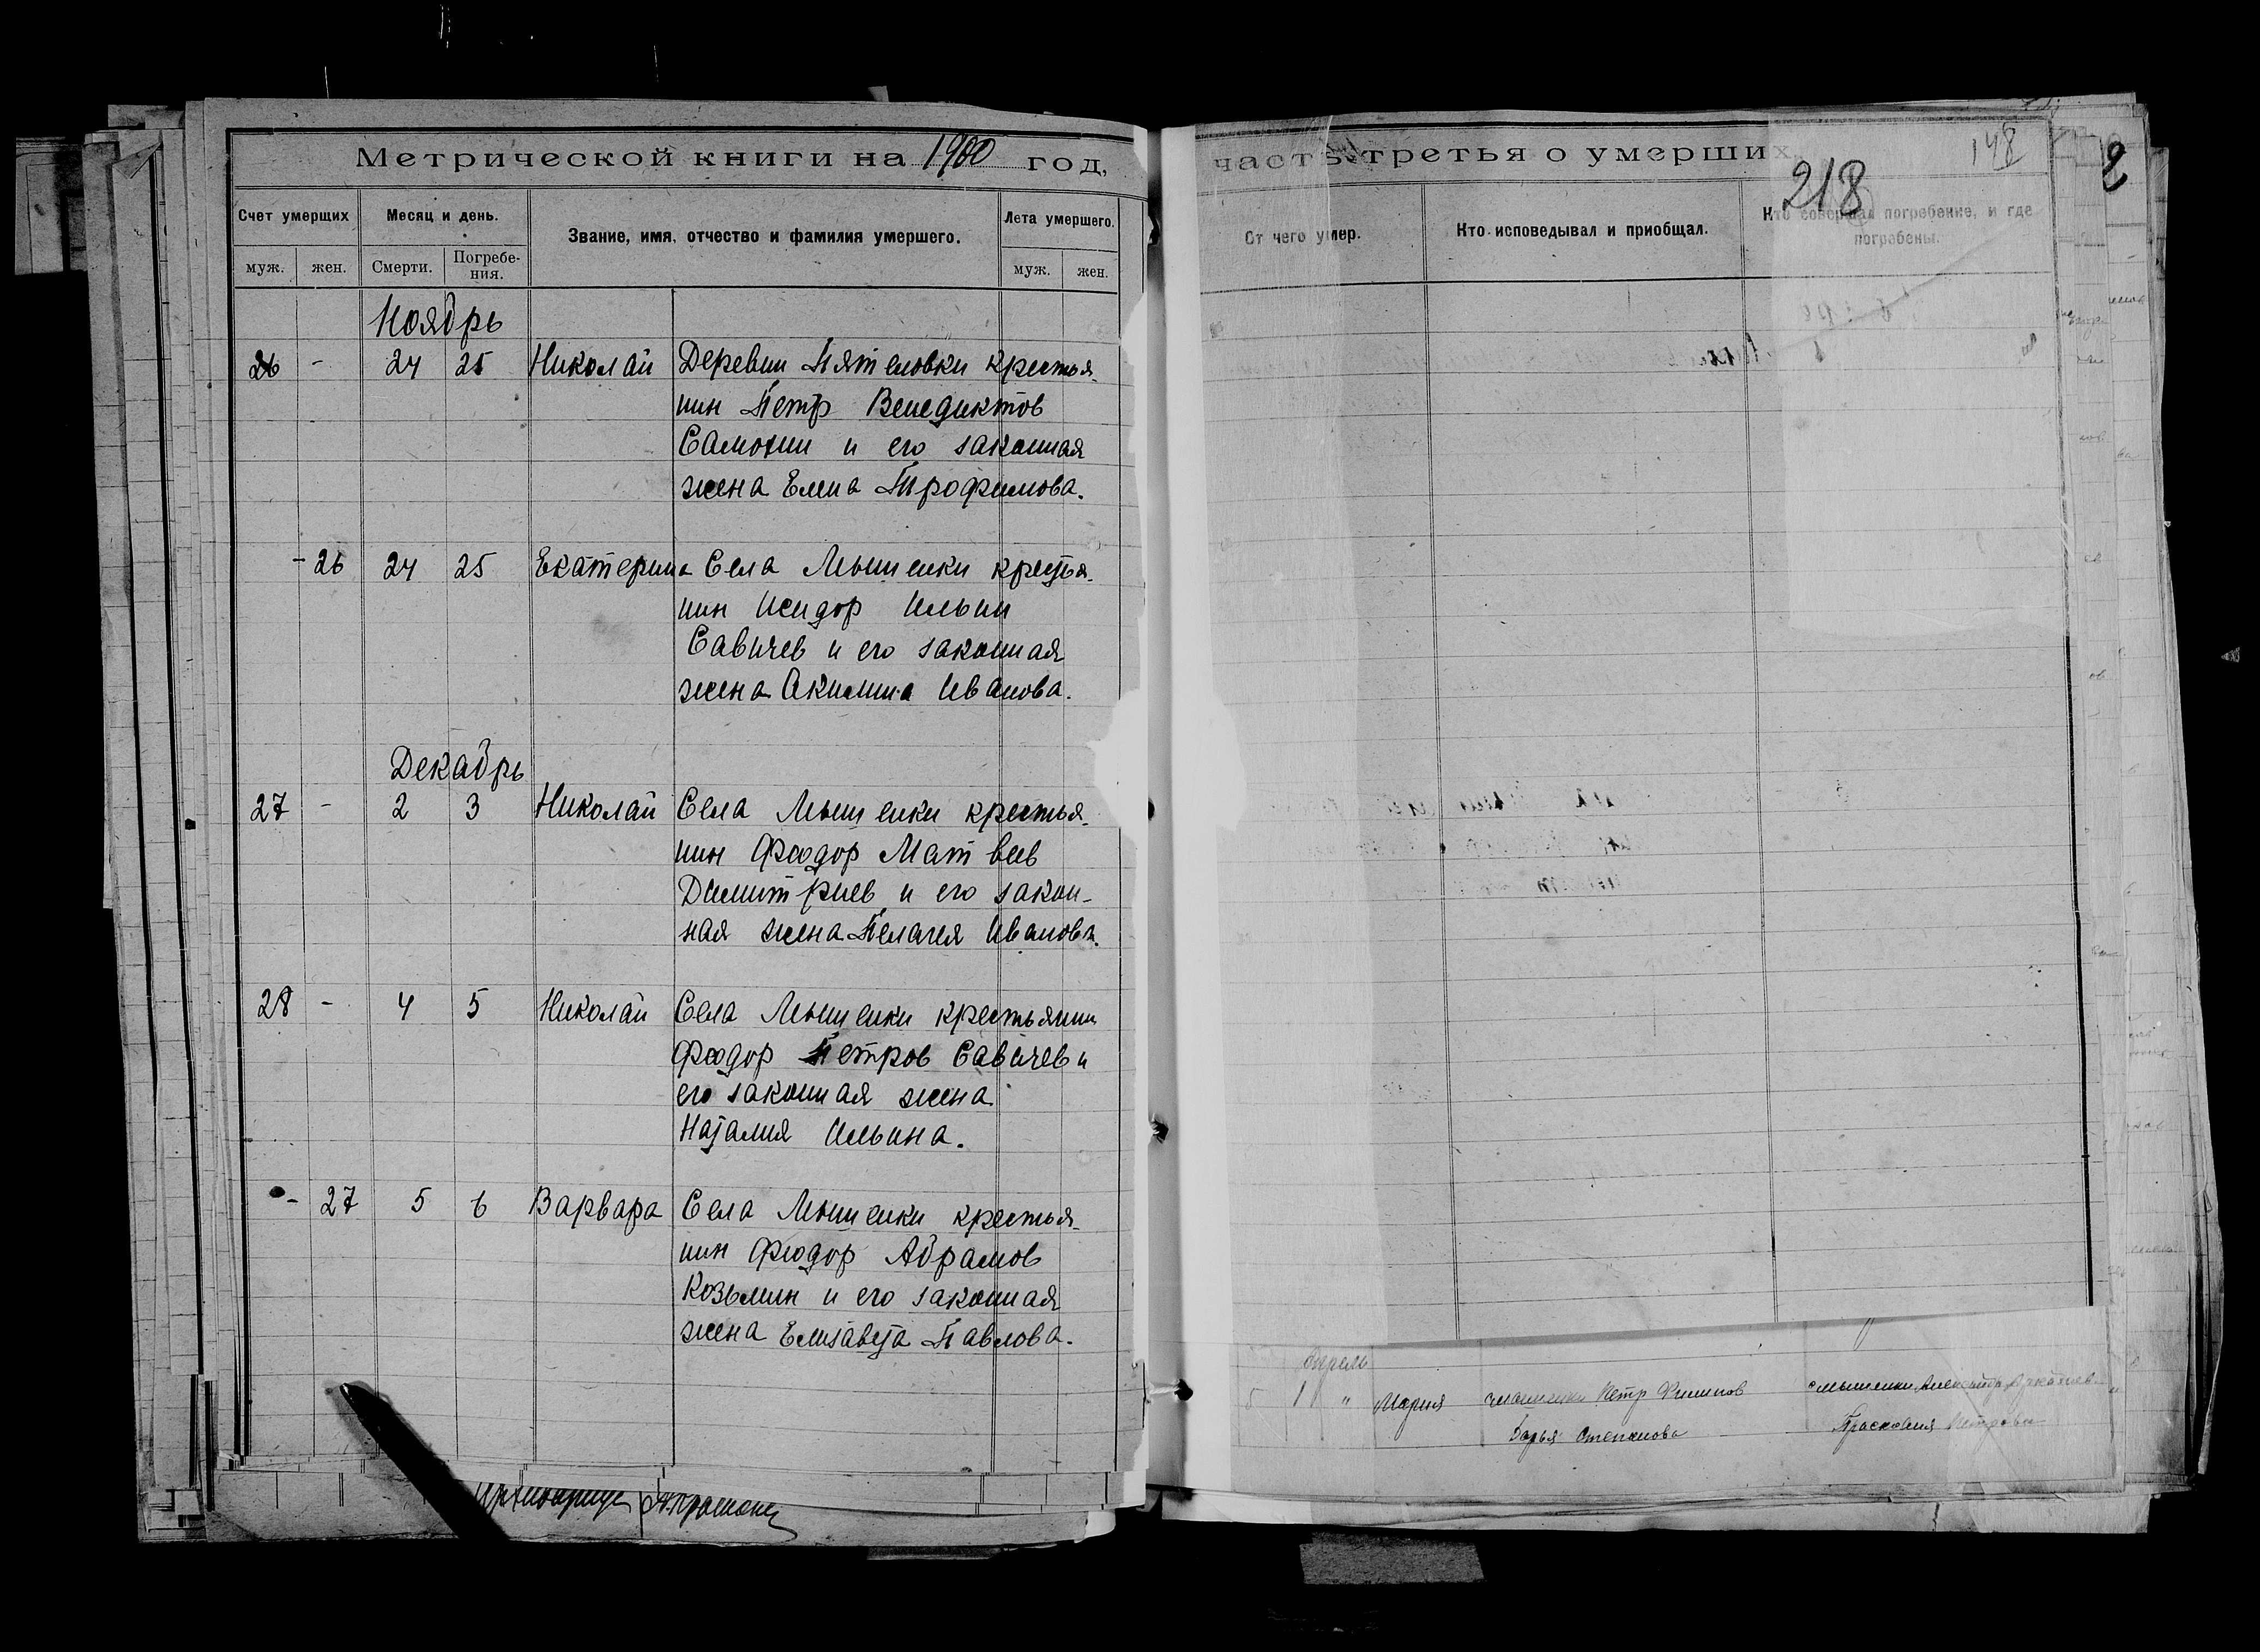 Метрической книги на 1900 год,
часть третья о умерших
148
218
2
Счет умерщих
Месяц и день.
Звание, имя, отчество и фамилия умершего.
Лета умершего.
муж. жен. Смерти. Погребе-
ния.
муж. жен.
От чего умер.
Кто исповедывал и приобщал.
Кто совершал погребение, и где
погребены.
Ноябрь
26 - 24 25 Николай Деревни Пятеловки крестья-
нин Петр Венедиктов
Самохин и его законная
жена Елена Трофимова.
- 26 24 25 Екатерина Села Мышенки крестья-
нин Исидор Ильин
Савичев и его законная
жена Акилина Иванова.
Декабрь
27 - 2 3 Николай Села Мышенки крестья-
нин Феодор Матвеев
Димитриев и его закон-
ная жена Пелагея Иванова.
28 - 4 5 Николай Села Мышенки крестьянин
Феодор Петров Савичев и
его законная жена
Наталия Ильина.
- 27 5 6 Варвара Села Мышенки крестья-
нин Феодор Абрамов
Козьмин и его законная
жена Елизавета Павлова.
Апрель
1 " Мария Петр Филипов
Дарья Степанова
с мышенки Александр
Прасковия Петрова